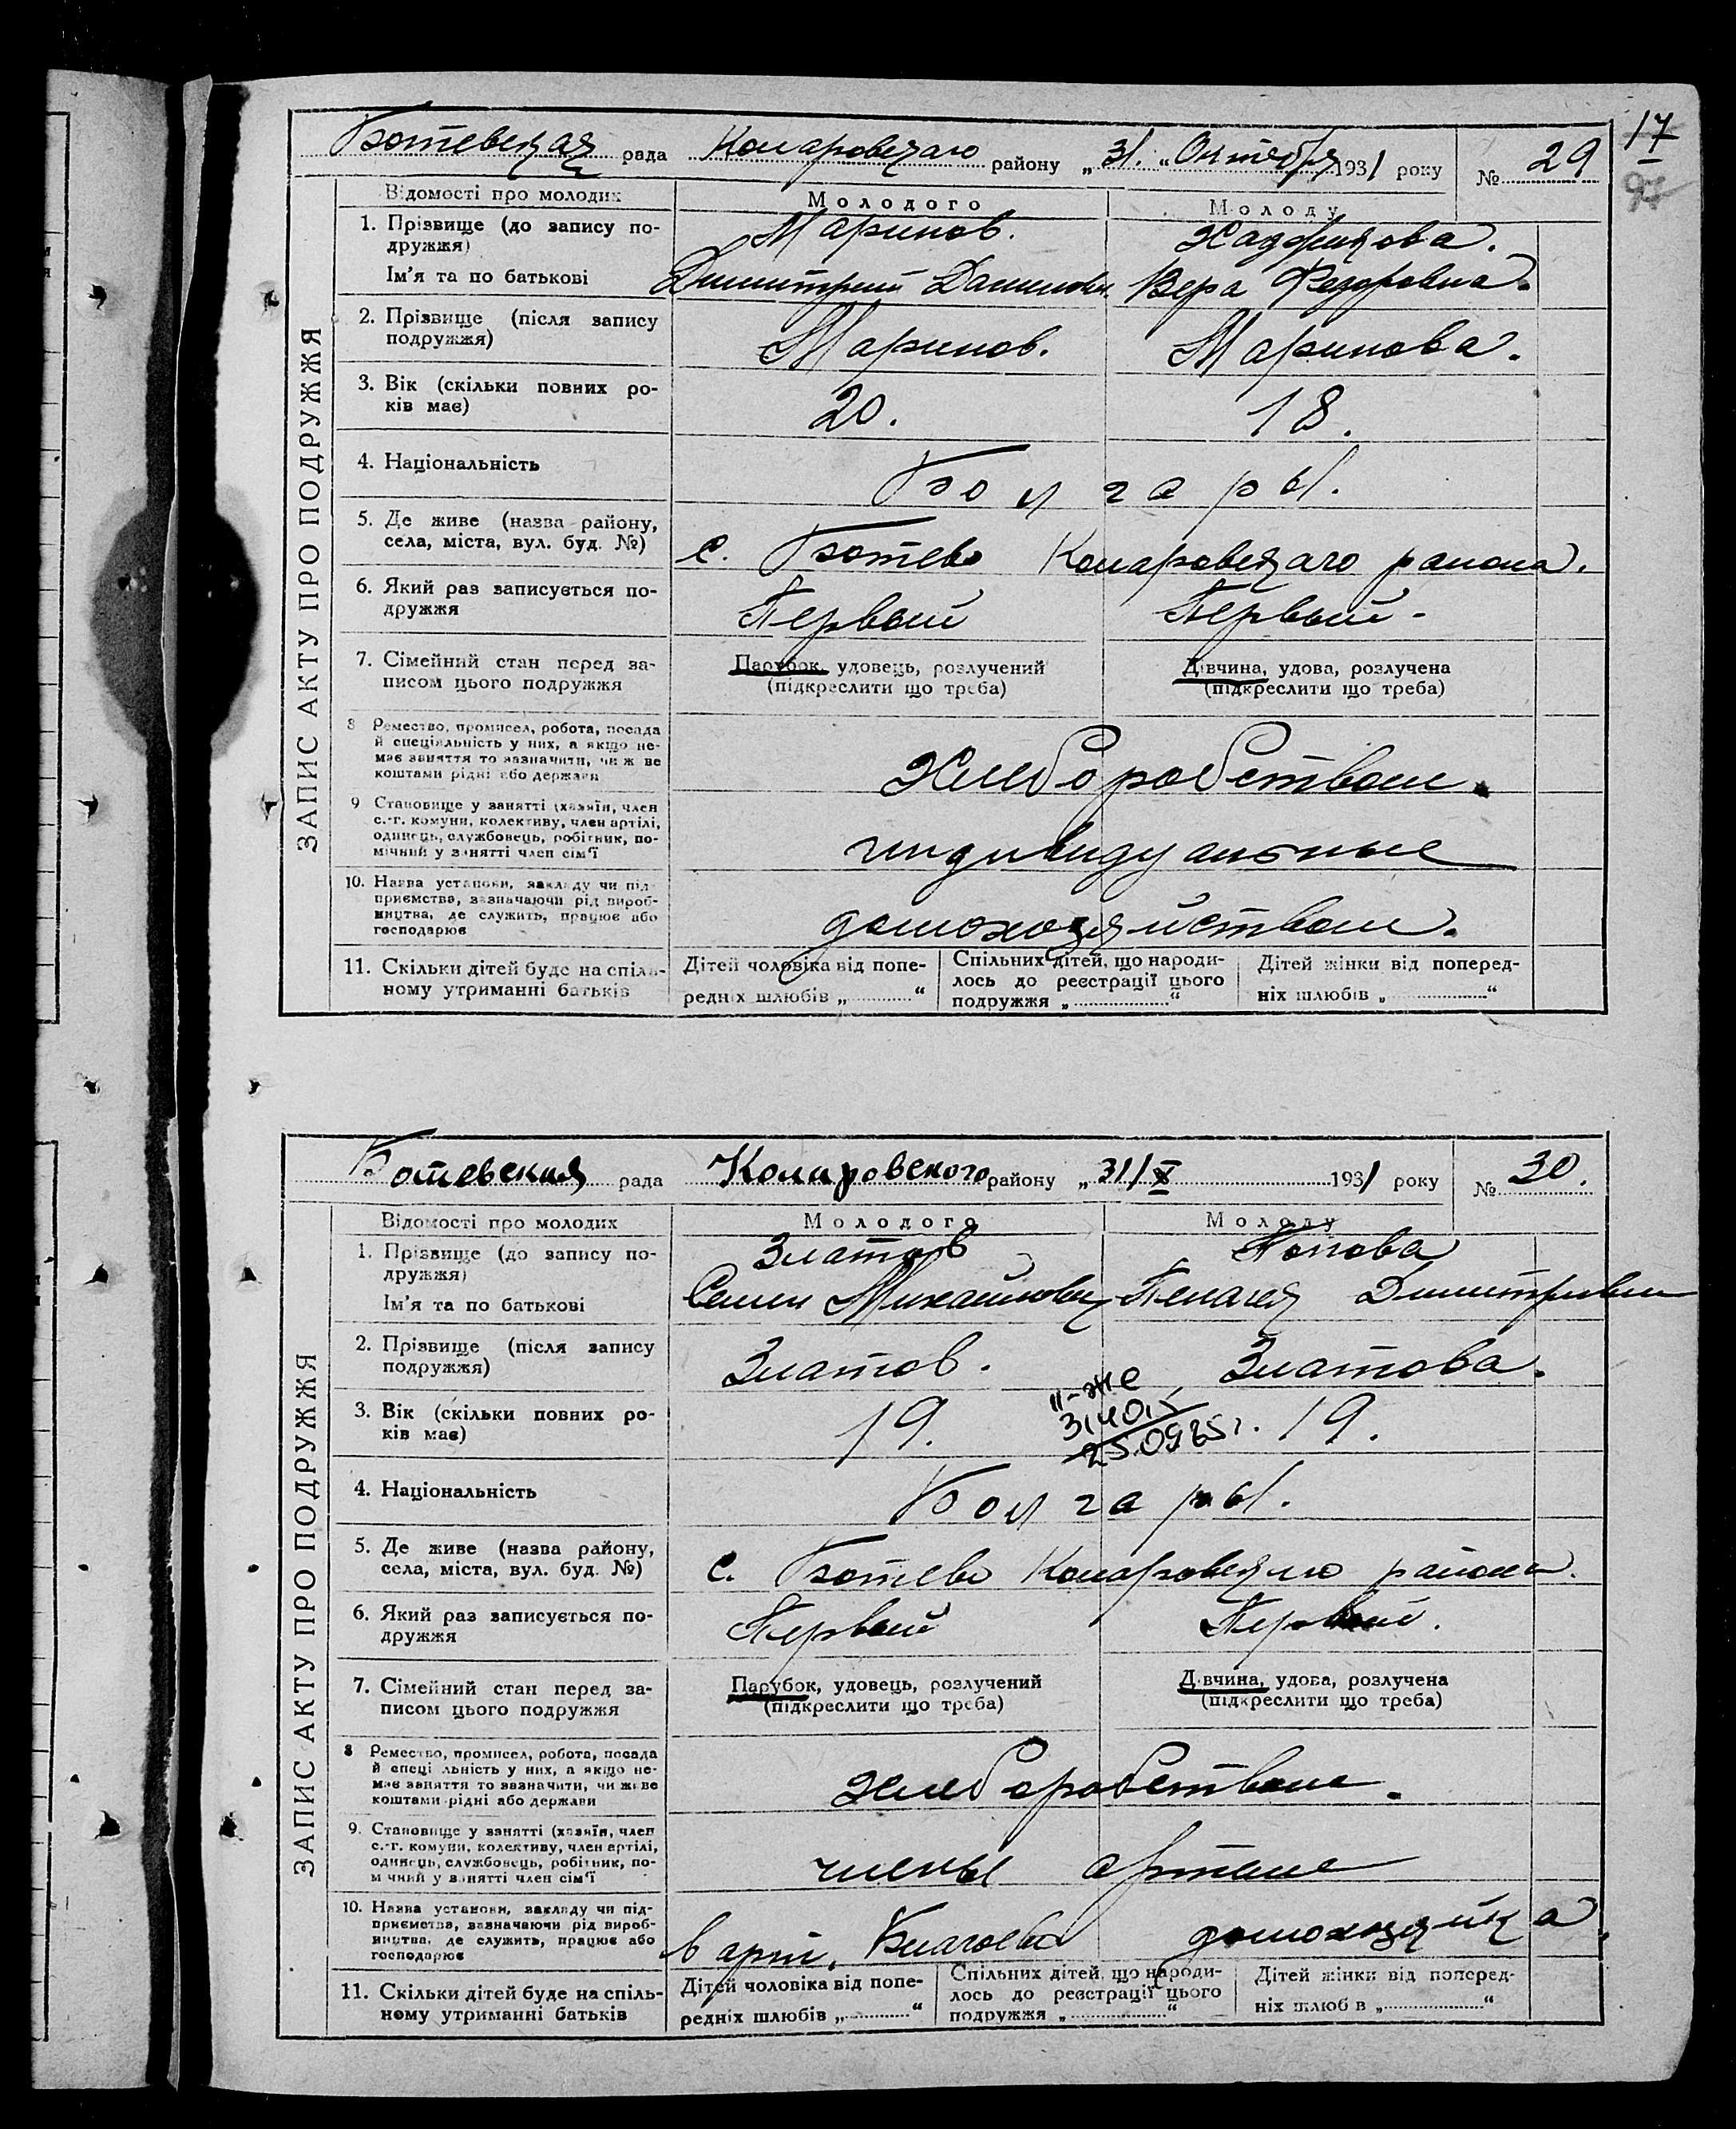 17
97
Ботевская рада Коларовского району „31.“ Октября 1931 року № 29
ЗАПИС АКТУ ПРО ПОДРУЖЖЯ
Відомості про молодих
Молодого
Молоду
1. Прізвище (до запису по-
дружжя)
Маринов.
Ім'я та по батькові
Димитрий
Вера Федоровна.
2. Прізвище (після запису
подружжя)
Маринов.
Маринова.
3. Вік (скільки повних ро-
ків має)
20.
18.
4. Національність
Болгары.
5. Де живе (назва району,
села, міста, вул. буд. №)
с. Ботево Коларовского района.
6. Який раз записується по-
дружжя
Первый
Первый-
7. Сімейний стан перед за-
писом цього подружжя
Парубок, удовець, розлучений
(підкреслити що треба)
Дівчина, удова, розлучена
(підкреслити що треба)
8 Ремество, промисел, робота, посада
й спеціяльність у них, а якщо не-
має заняття то зазначити, чи живе
коштами рідні або держави
Хлеборобством.
9 Становище у занятті (хазяїн, член
с.-г. комуни, колективу, член артілі,
одинець, службовець, робітник, по-
мічний у занятті член сім'ї
индивидуальные
10. Назва установи, закладу чи під-
приємства, зазначаючи рід вироб-
ництва, де служить, працює або
господарює
домохозяйством.
11. Скільки дітей буде на спіль-
ному утриманні батьків
Дітей чоловіка від попе-
редніх шлюбів „ “
Спільних дітей, що народи-
лось до реєстрації цього
подружжя „ “
Дітей жінки від поперед-
ніх шлюбів „ “
Ботевская рада Коларовского району „31/X 1931 року № 30.
ЗАПИС АКТУ ПРО ПОДРУЖЖЯ
Відомості про молодих
Молодого
Молоду
1. Прізвище (до запису по-
дружжя)
Златов
Попова
Ім'я та по батькові
Семен Михайлович
Пелагея Димитриевн
2. Прізвище (після запису
подружжя)
Златов.
Златова.
3. Вік (скільки повних ро-
ків має)
19.
II-ЖС
19.
4. Національність
Болгары.
5. Де живе (назва району,
села, міста, вул. буд. №)
с. Ботево Коларовского района.
6. Який раз записується по-
дружжя
Первый
Первый.
7. Сімейний стан перед за-
писом цього подружжя
Парубок, удовець, розлучений
(підкреслити що треба)
Дівчина, удова, розлучена
(підкреслити що треба)
8 Ремество, промисел, робота, посада
й спеціяльність у них, а якщо не-
має заняття то зазначити, чи живе
коштами рідні або держави
хлеборобством.
9. Становище у занятті (хазяїн, член
с.-г. комуни, колективу, член артілі,
одинець, службовець, робітник, по-
мічний у занятті член сім'ї
члены артели
10. Назва установи, закладу чи під-
приємства, зазначаючи рід вироб-
ництва, де служить, працює або
господарює
в арт.
домохозяйка
11. Скільки дітей буде на спіль-
ному утриманні батьків
Дітей чоловіка від попе-
редніх шлюбів „ “
Спільних дітей, що народи-
лось до реєстрації цього
подружжя „ “
Дітей жінки від поперед-
ніх шлюбів „ “